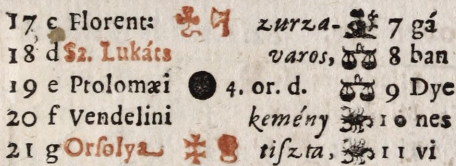 17 c Florent: zurza- 7 gá
18 d Sz. Lukáts varos, 8 ban
19 e Ptolomæi 4. or. d. 9 Dye
20 f Vendelini kemény 10 nes
21 g Orsolya tiszta, 11 vi